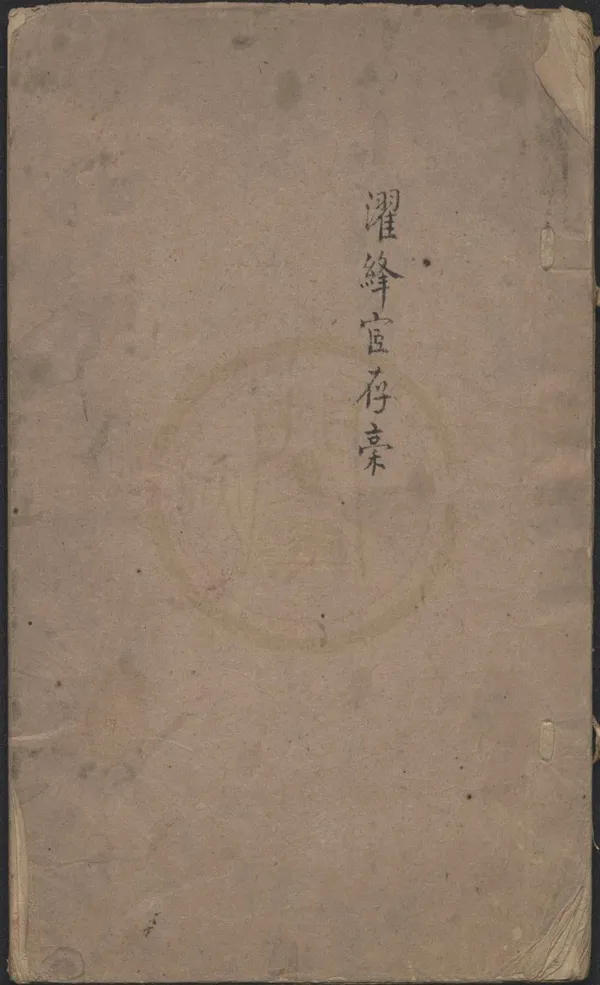 濯絳宦存稾